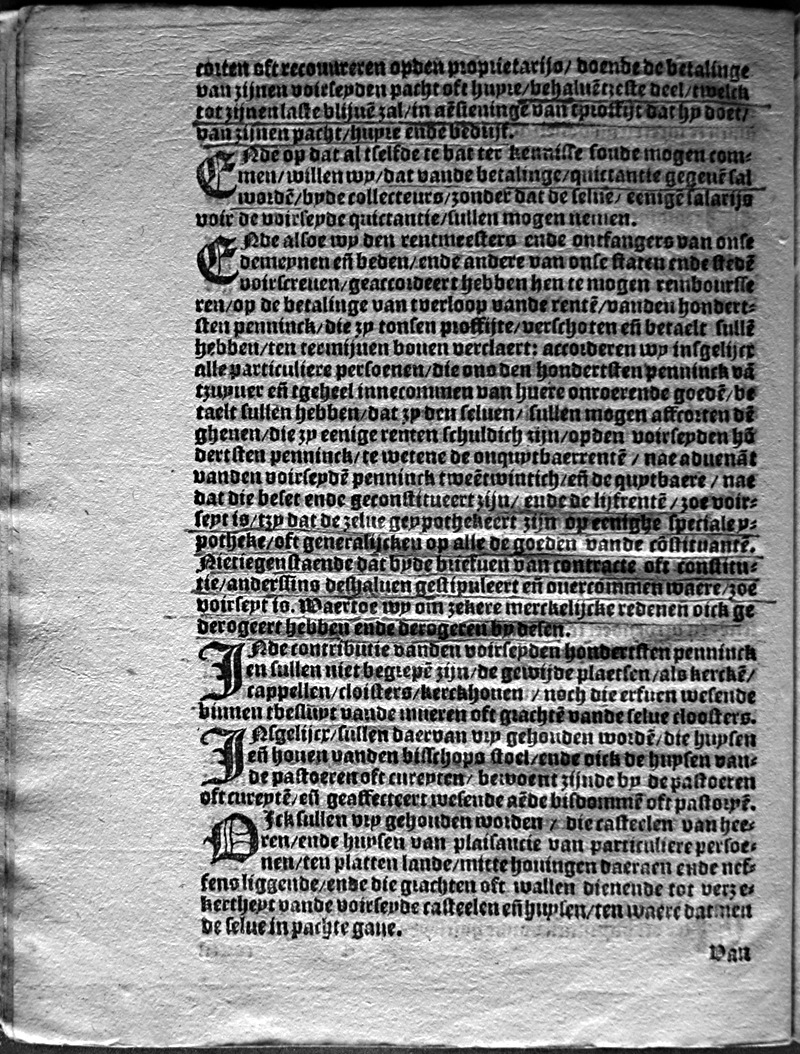 corten oft recouureren opden proprietarijs/ doende de betalinge
van zijnen voirseyden pacht oft huyre/behaluẽtzeste deel/twelck
tot zijnen laste blijuẽ zal/in aẽsieninge van tproffijt dat hy doet/
van zijnen pacht/huyre ende bedrijf.
ENde op dat al tselfde te bat ter kennisse soude mogen com-
men/willen wy/dat vande betalinge/quictantie gegeuẽ sal
wordẽ/byde collecteurs/zonder dat de selue/ eenigẽ salarijs
voir de voirseyde quictantie/sullen mogen nemen.
ENde alsoe wy den rentmeesters ende ontfangers van onse
demeynen eñ beden/ende andere van onse staten ende stedẽ
voirscreuen/geaccordeert hebben hen te mogen rembourse
ren/op de betalinge van tverloop vande rentẽ/vanden hondert-
sten penninck/die zy tonsen proffijte/verschoten eñ betaelt sullẽ
hebben/ten termijnen bouen verclaert: accorderen wy insgelijcx
alle particuliere persoenen/die ons den hondertsten penninck vã
tzuyuer eñ tgeheel innecommen van huere onroerende goedẽ/be
taelt sullen hebben/dat zy den seluen/ sullen mogen affcorten dẽ
ghenen/die zy eenige renten schuldich zijn/opden voirseyden hõ
dertsten penninck/te wetene de onquytbaerrentẽ / nae aduenãt
vanden voirseydẽ penninck tweẽtwintich/eñ de quytbaere / nae
dat die beset ende geconstitueert zijn/ ende de lijfrentẽ /zoe voir-
seyt is/tzy dat de zelue geypothekeert zijn op eenighe speciale y-
potheke/oft generalijcken op alle de goeden vande cõstituantẽ.
Nietiegenstaende dat byde brieuen van contracte oft constitu-
tie/anderssins deshaluen gestipuleert eñ ouercommen waere/zoe
voirseyt is. Waertoe wy om zekere merckelijcke redenen oick ge
derogeert hebben ende derogeren by desen.
INde contributie vanden voirseyden hondertsten penninck
en sullen niet begrepẽ zijn/de gewijde plaetsen/als kerckẽ/
cappellen/cloisters/kerckhouen /noch die erfuen wesende
binnen tbesluyt vande mueren oft grachtẽ vande selue cloosters.
INsgelijcx/sullen daervan vry gehouden wordẽ/die huysen
eñ houen vanden bisschops stoel/ende oick de huysen van-
de pastoeren oft cureyten/ bewoent zijnde by de pastoeren
oft cureytẽ/eñ geaffecteert wesende aẽde bisdommẽ oft pastoryẽ.
OIck sullen vry gehouden worden / die casteelen van hee-
ren/ende huysen van plaisancie van particuliere persoe-
nen/ten platten lande/mitte houingen daeraen ende nef-
fens liggende/ende die grachten oft wallen dienende tot verze-
kertheyt vande voirseyde casteelen eñ huysen/ten waere dat men
de selue in pachte gaue.
Van